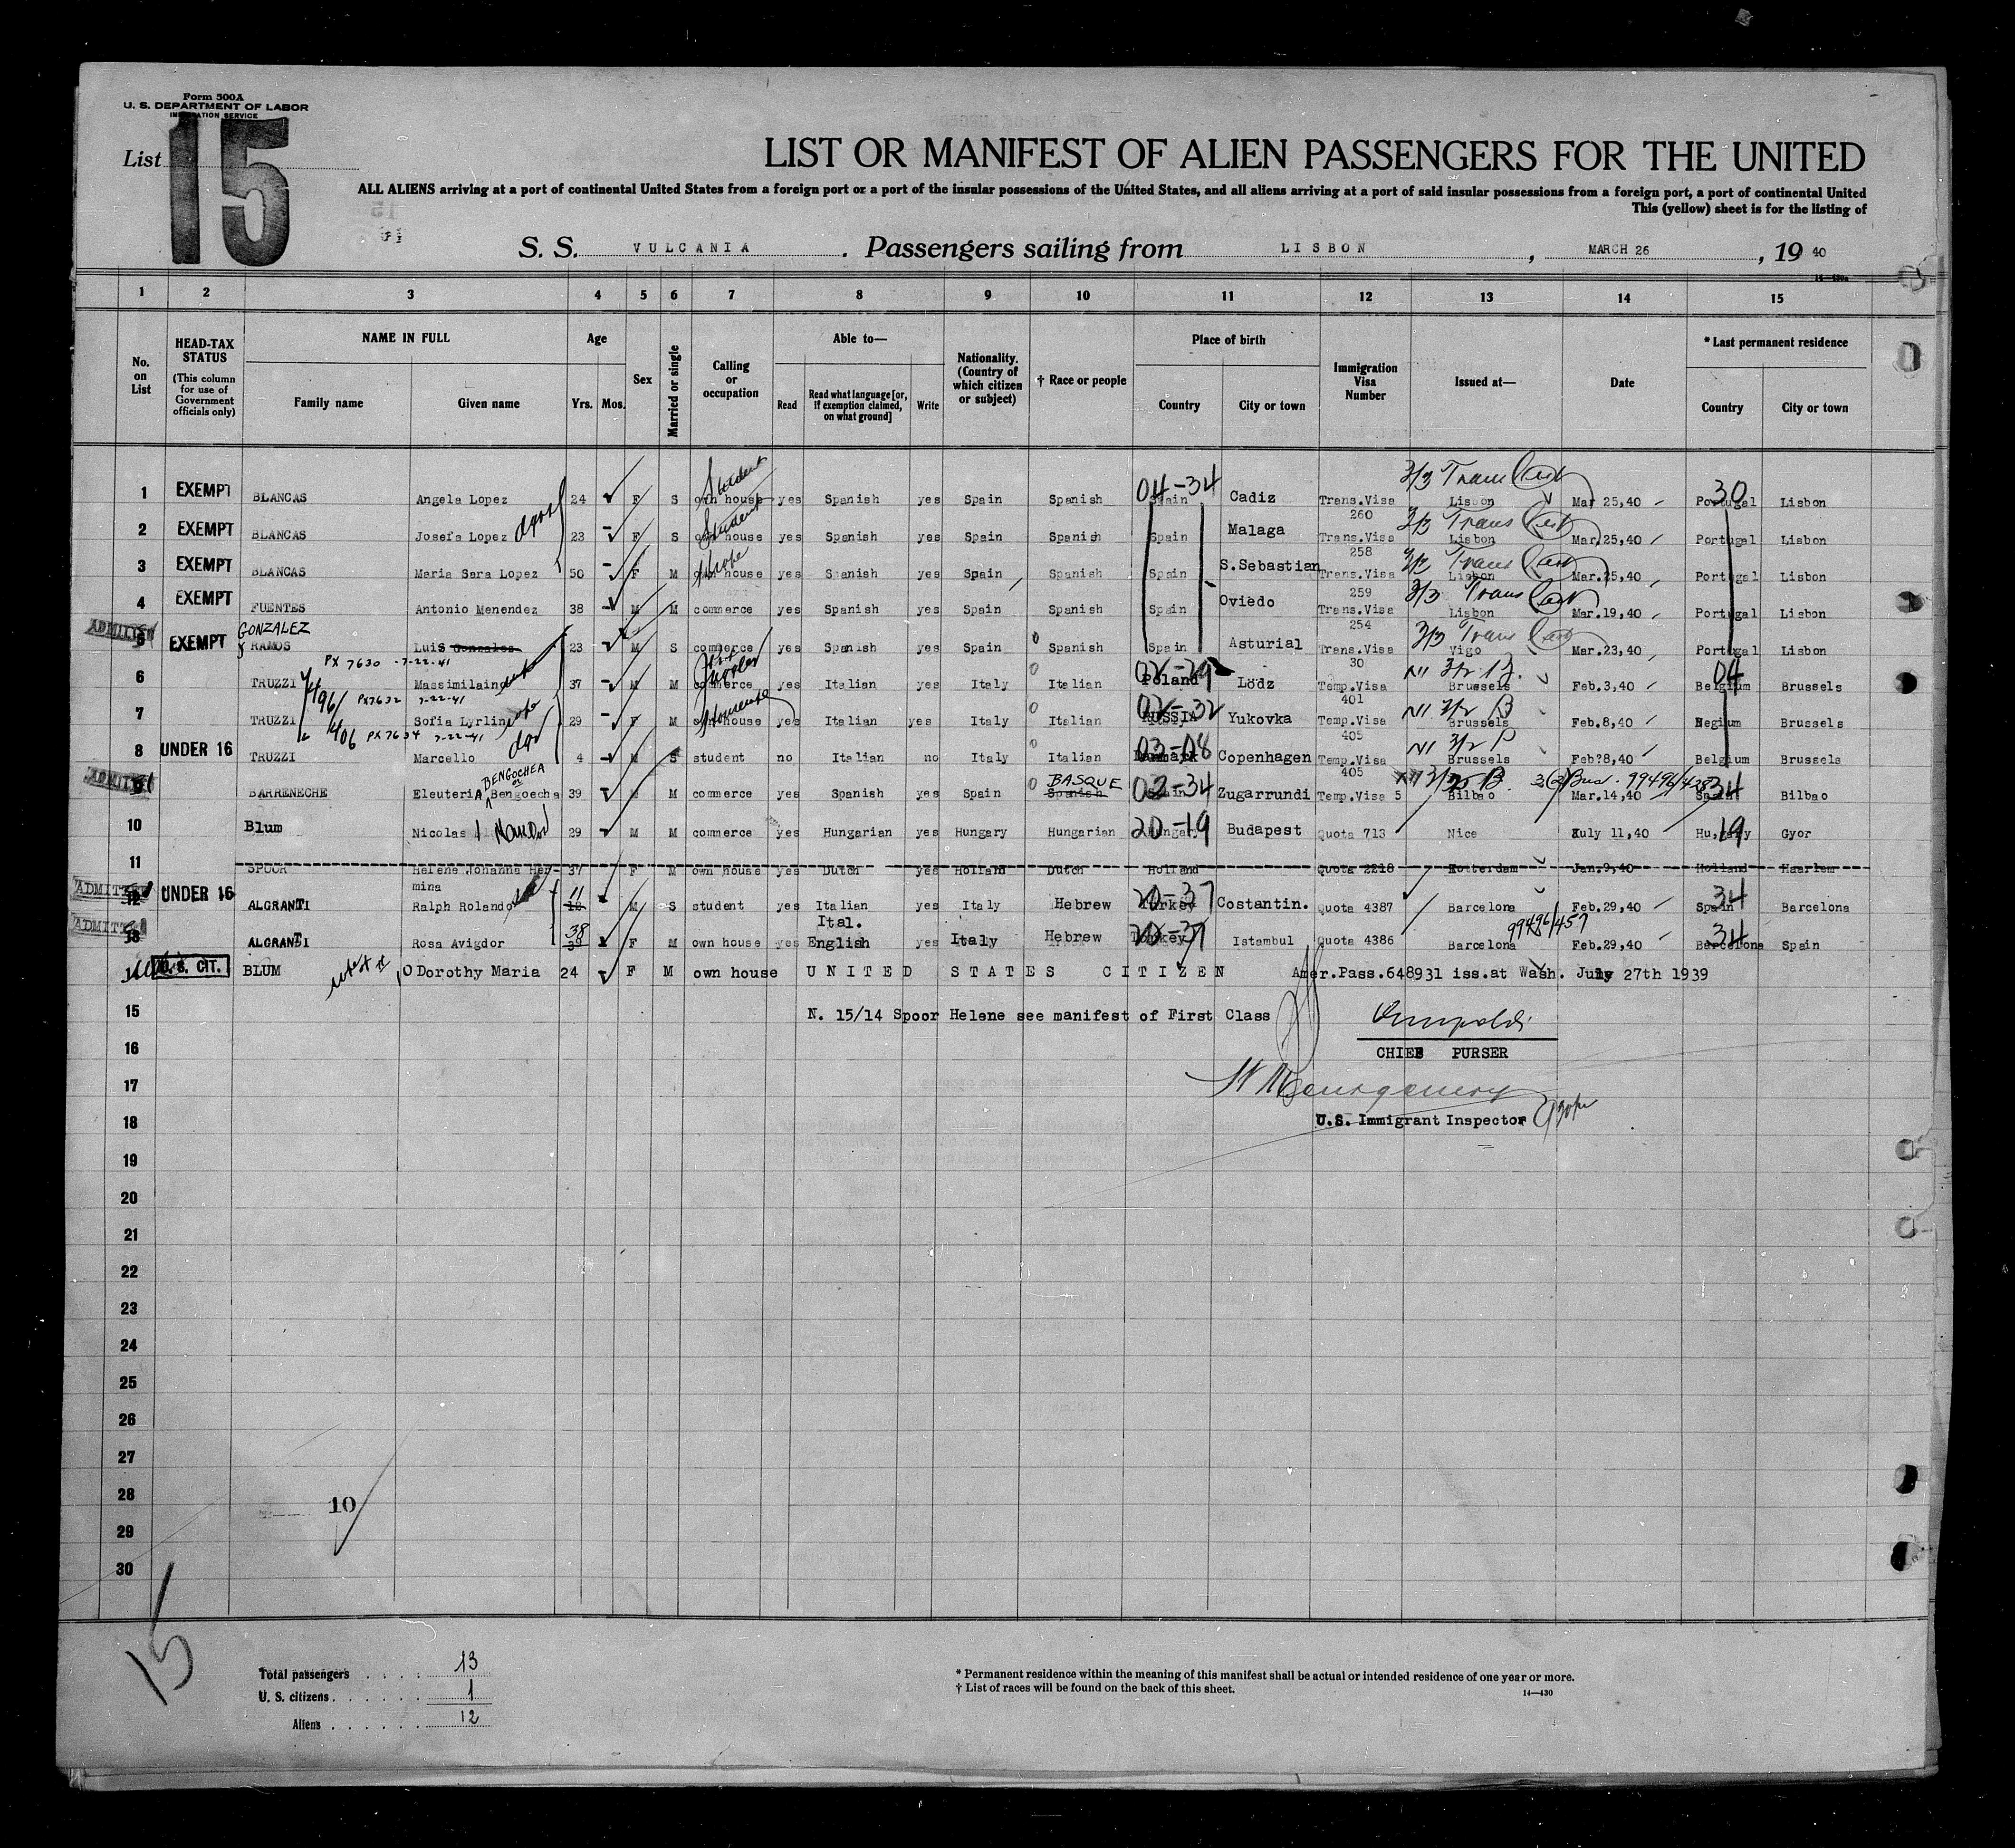 Form 500A
U. S. DEPARTMENT OF LABOR
IMMIGRATION SERVICE
List 15
LIST OR MANIFEST OF ALIEN PASSENGERS FOR THE UNITED
ALL ALIENS arriving at a port of continental United States from a foreign port or a port of the insular possessions of the United States, and all aliens arriving at a port of said insular possessions from a foreign port, a port of continental United
This (yellow) sheet is for the listing of
S. S. VULCANIA . Passengers sailing from LISBON , MARCH 26 , 19 40
1 2 3 4 5 6 7 8 9 10 11 12 13 14 15
No. on List
HEAD-TAX STATUS (This column for use of Government officials only)
NAME IN FULL Family name Given name
Age Yrs. Mos.
Sex
Married or single
Calling or occupation
Able to— Read Read what language [or, if exemption claimed, on what ground] Write
Nationality. (Country of which citizen or subject)
† Race or people
Place of birth Country City or town
Immigration Visa Number
Issued at—
Date
* Last permanent residence Country City or town
1 EXEMPT BLANCAS Angela Lopez 24 F S own house Student yes Spanish yes Spain Spanish Spain 04-34 Cadiz Trans.Visa 260 Lisbon Mar 25,40 Portugal 30 Lisbon
2 EXEMPT BLANCAS Josefa Lopez 23 F S own house Student yes Spanish yes Spain Spanish Spain Malaga Trans.Visa 258 Lisbon Mar.25,40 Portugal Lisbon
3 EXEMPT BLANCAS Maria Sara Lopez 50 F M own house yes Spanish yes Spain Spanish Spain S.Sebastian Trans.Visa 259 Lisbon Mar.25,40 Portugal Lisbon
4 EXEMPT FUENTES Antonio Menendez 38 M M commerce yes Spanish yes Spain Spanish Spain Oviedo Trans.Visa 254 Lisbon Mar.19,40 Portugal Lisbon
ADMITTED 5 EXEMPT GONZALEZ RAMOS Luis Gonzalez 23 M S commerce yes Spanish yes Spain Spanish Spain Asturial Trans.Visa 30 Vigo Mar.23,40 Portugal Lisbon
PX 7630 - 7-22-41
6 TRUZZI Massimilain 37 M M commerce Juggler yes Italian yes Italy Italian Poland Lödz Temp.Visa 401 Brussels Feb.3,40 Belgium 04 Brussels
PX7632 7-22-41
7 TRUZZI Sofia Lyrlin 29 F M own house yes Italian yes Italy Italian RUSSIA 02-32 Yukovka Temp.Visa 405 Brussels Feb.8,40 Belgium Brussels
PX 7634 7-22-41
8 UNDER 16 TRUZZI Marcello 4 M S student no Italian no Italy Italian Danmark 03-08 Copenhagen Temp.Visa 405 Brussels Feb?8,40 Belgium Brussels
ADMITTED 9 BARRENECHE Eleuteria Bengoecha BENGOCHEA 39 M commerce yes Spanish yes Spain Spanish BASQUE Spain 02-34 Zugarrundi Temp.Visa 5 Bilbao Mar.14,40 99496/428 Spain 34 Bilbao
10 Blum Nicolas 29 M M commerce yes Hungarian yes Hungary Hungarian Hungary 20-19 Budapest Quota 713 Nice July 11,40 Hungary 19 Gyor
11 SPOOR Helene Johanna Hermina 37 F M own house yes Dutch yes Holland Dutch Holland Quota 2218 Rotterdam Jan.9,40 Holland Haarlem
ADMITTED 12 UNDER 16 ALGRANTI Ralph Rolando 11 M S student yes Italian yes Italy Hebrew Turkey 20-37 Costantin. Quota 4387 Barcelona Feb.29,40 Spain 34 Barcelona
ADMITTED 13 ALGRANTI Rosa Avigdor 38 39 F M own house yes Ital. English yes Italy Hebrew Tourkey 20-37 Istambul Quota 4386 Barcelona 99496/457 Feb.29,40 Barcelona 34 Spain
U.S. CIT. BLUM Dorothy Maria 24 F M own house UNITED STATES CITIZEN Amer.Pass.648931 iss.at Wash. July 27th 1939
15 N. 15/14 Spoor Helene see manifest of First Class
16 CHIEF PURSER
17 Montgomery
18 U.S. Immigrant Inspector
19
20
21
22
23
24
25
26
27
28 10
29
30
15
Total passengers . . . . 13
U. S. citizens . . . . . . 1
Aliens . . . . . . 12
* Permanent residence within the meaning of this manifest shall be actual or intended residence of one year or more.
† List of races will be found on the back of this sheet.
14—430